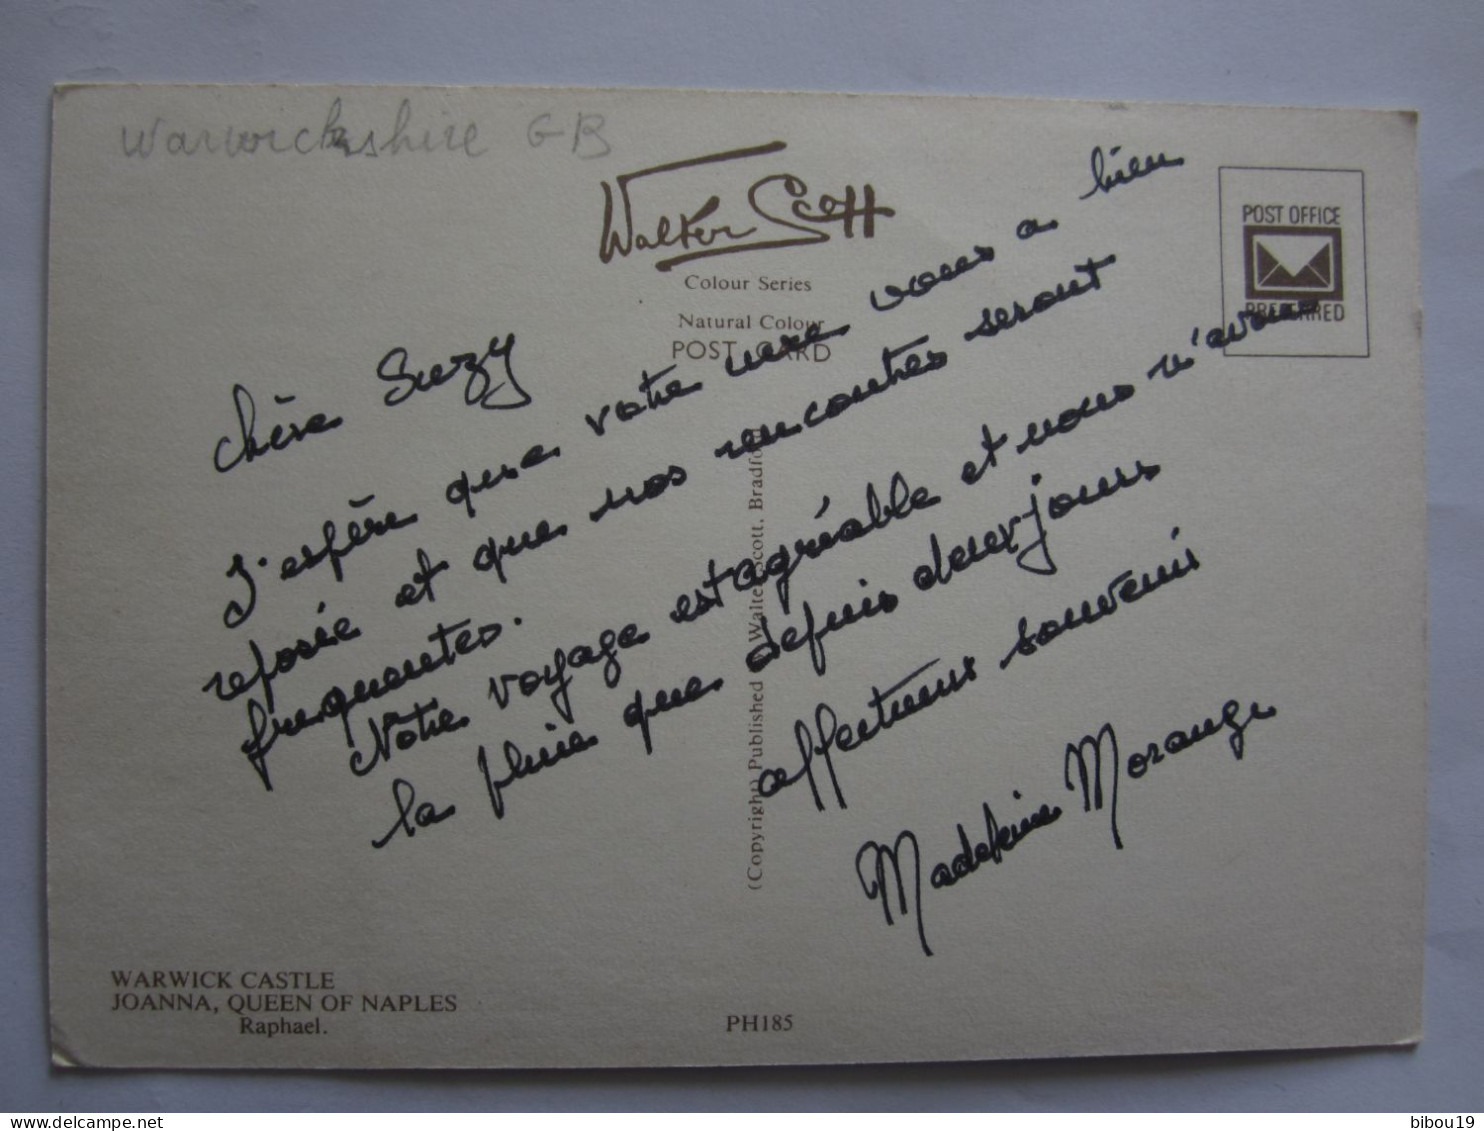 Warwickshire GB
Walter Scott
Colour Series
Natural Colour
POST CARD
POST OFFICE
PREFERRED
Chère Suzy
J'espère que votre mere vous a bien
reposée et que nos rencontres seront
frequentes.
Notre voyage est agréable et nous n'avons
la pluie que depuis deux jours
affectueux souvenirs
Madeleine Morange
(Copyright) Published Walter Scott, Bradford
WARWICK CASTLE
JOANNA, QUEEN OF NAPLES
Raphael.
PH185
bibou19